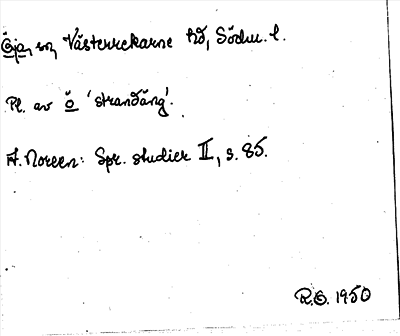 Öja, sn Västerrekarne hd, Södm. l.
Pl. av ö 'strandäng'.
A. Noreen: Spr. studier II, s. 85.
R.O. 1950